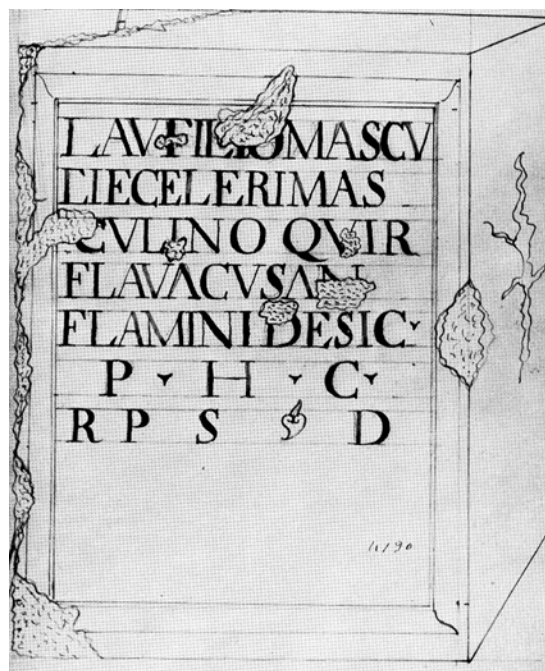 LAV FILIO MASCV
LIE CELERI MAS
CVLINO QVIR
FLAVACVSAN
FLAMINI DESIC
P H C
R P S D